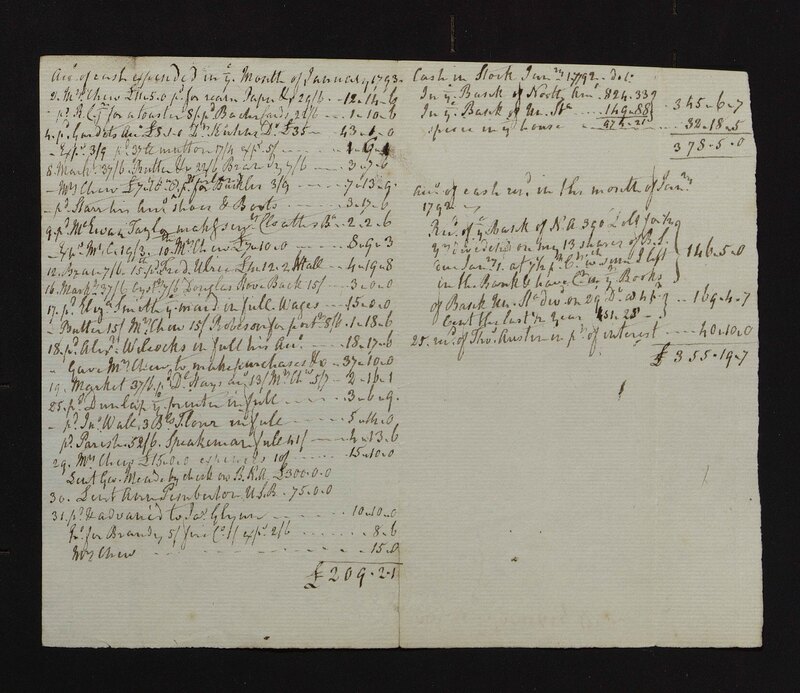 Acct. of cash expended in ye. Month of January 1793.
2. Mrs. Chew £11.5.0 pd. for 29/6 - 12-14-6
pd. for a toaster 8/ pd Backards 2/6 - 1-10-6
4. pd. £8.1.0 Do. £35 - 43-1-0
Exps. 3/9 mutton 17/4 exps. 5/
8. Markt. 37/6 Butter &c 22/6 Brandy 7/6 - 3-7-6
Mrs Chew £7.10.0 pd. for Buckles 3/9 - 7-13-9
pd. Starr his Acct. shoes & Boots - 3-17-6
9. pd. McEwan Taylor making Cloaths Bn. - 2-2-6
Exps. Mr. C. 19/3 10. Mrs Chew £7.10.0 - 8-9-3
12. Bran 7/6. 15. pd. Fred. Ulric £ 12.2 Hall - 4-19-8
16. Markt. 37/6 Oysts. 7/6 Douglas Stove Back 15/ - 3-0-0
17. pd. Eliza. Smith ye. maid in full. Wages - 15-0-0
Butter 15/ Mrs Chew 15/ Robeson for port. 8/6 - 1-18-6
18. pd. Alexr. Wilcocks in full his Acct. - 18-17-6
Gave Mrs Chew to make purchases &c - 37-10-0
19. Market 37/6. pd. Dr. Hays acct. 13/ Mrs. Chew 5/7 - 2-16-1
25. pd. Dunlap ye. printer in full - 3-6-9.
pd. Jno. Wall, 3 Bls Flour in full - 5-14-0
pd. Parish 52/6. Speakman full 41/ - 4-13-6
29. Mrs Chew £15.0.0 expences 10/ - 15-10-0
Lent Geo. Meade by check on B.N.A. £300.0.0
30. Lent Ann Pemberton U.S.B. 75.0.0
31. pd. & advanced to Jas. Glynn - 10-10-0
Do. for Brandy 5/ fire Co. 1/ exps. 2/6 - 8-6
Mrs Chew - 15-0
£209-2-1
Cash in Stock Jany. 1792. dols.
In ye. Bank of North Ama. 824.33
In ye. Bank of Un. Sta. 149.88 } 345-6-7
specie in my house 974.21 - 32-18-5
378-5-0
Acct. of cash recd. in this month of Jany.
1792
Recd. of ye. Bank of N.A. 390 Dols for
ye. dividend on my 13 shares of B.S.
due Jany. 1. at 7½ pr. Ct. wch. sum I left
in the Bank & have Cr. in ye. Books } 146-5-0
of Bank Un. Sta. div. on 29 Do. at 4 pr.
Cent the last ½ year 451.28 } 169-4-7
25. recd. of Tho. Austin in pt. of interest - 40-10-0
£355-19-7